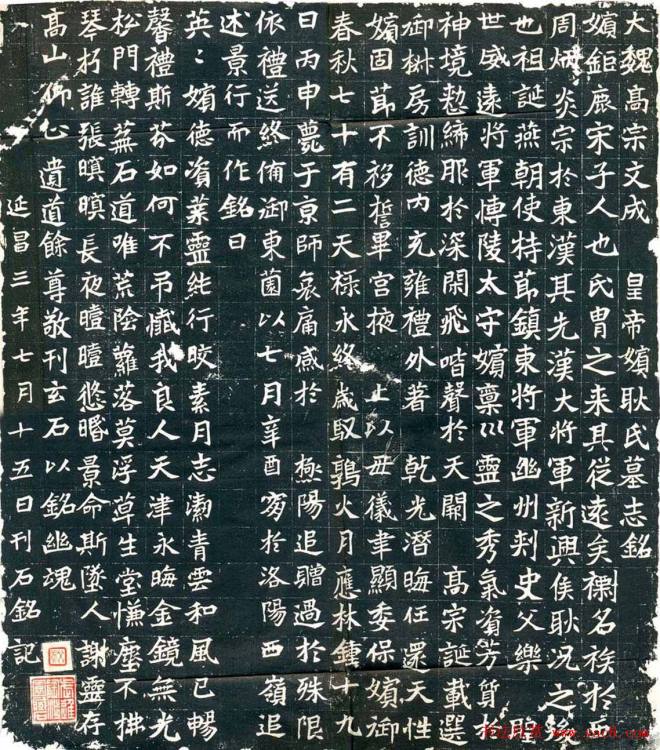 大魏高宗文成　皇帝嬪耿氏墓志銘
嬪鉅鹿宋子人也氏胄之来其從遠矣禂名族於西
周炳炎宗於東漢其先漢大將軍新興侯耿况之
也祖誕燕朝使持莭鎮東將軍幽州刾史父樂
世威遠將軍博陵太守嬪稟巛靈之秀氣資芳質
神境懃締服於深閑飛喈聲於天閫　高宗誕載選
御椒房訓德内充雍禮外著　乾光潛晦任還天性
嬪固莭不移誓畢宫掖　上以毌儀聿顯委保嬪御
春秋七十有二天祿永終歲馭鶉火月應林鍾十九
日丙申薨于京師哀痛慼於　極陽追贈過於殊限
依禮送終備御東薗以七月辛酉窆於洛陽西嶺追
述景行而作銘曰
英〻嬪德資業靈純行皎素月志瀞青雲和風已暢
馨禮斯芬如何不吊殲我良人天津永晦金鏡無光
松門轉蕪石道唯荒陰蘿落莫浮草生堂慊塵不拂
琴杇誰張暝暝長夜曀曀悠昏景命斯墜人謝靈存
高山仰止　遺道餘尊敬刊玄石以銘幽魂
延昌三年七月十五日刊石銘記